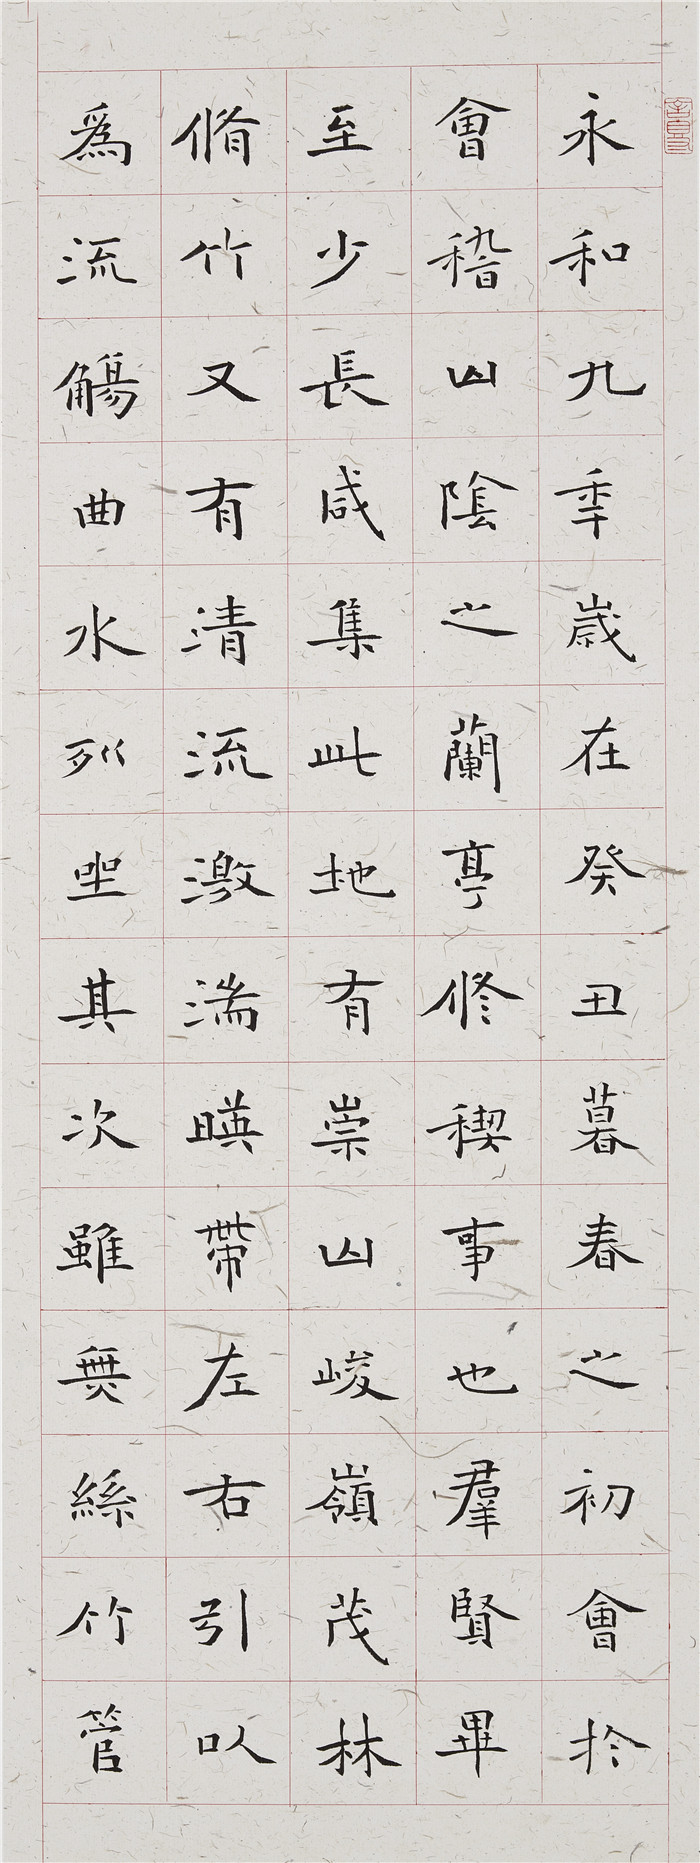 永和九年歲在癸丑暮春之初會於
會稽山陰之蘭亭修稧事也羣賢畢
至少長咸集此地有崇山峻嶺茂林
脩竹又有清流激湍暎帶左右引以
為流觴曲水列坐其次雖無絲竹管